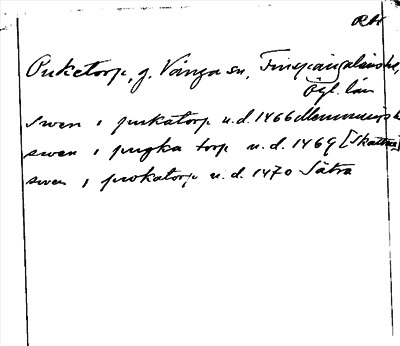 RA
Purketorp, g. Vånga sn, Finspångaläns hd,
Ögl. län
Swen i purkatorp u.d. 1466
swen i purgka torp u.d. 1469 [Skattna]
swen i porkatorp u.d. 1470 Sätra